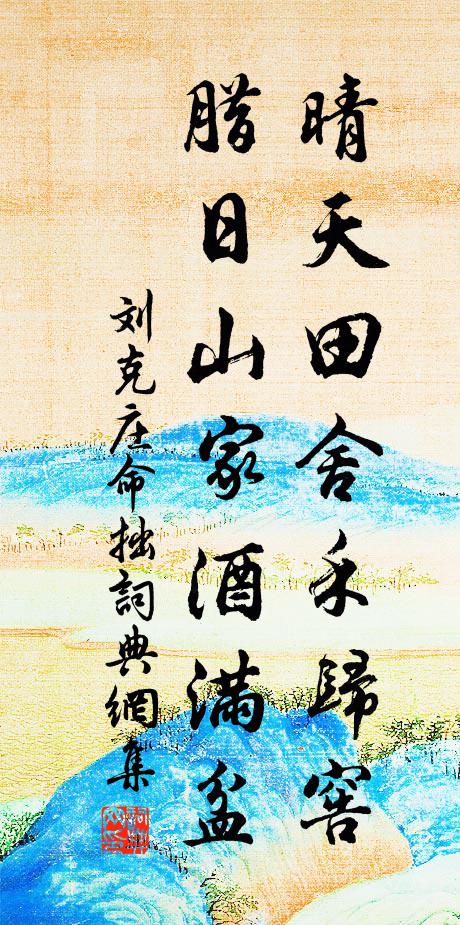 晴天田舍禾歸窖
腊日山家酒滿盆
刘克庄命拙詞典網集